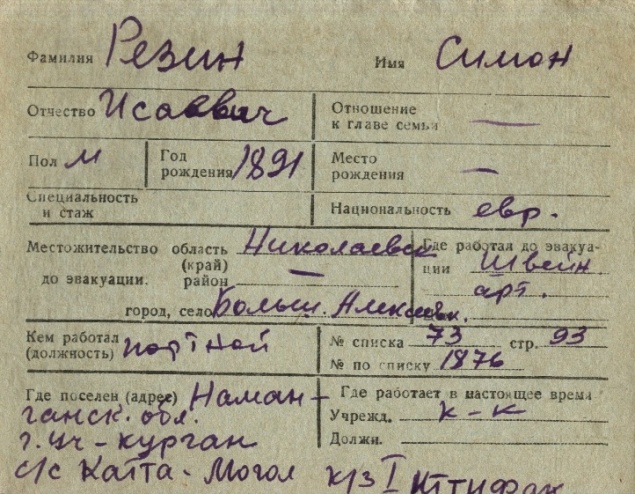 Фамилия Резин Имя Симон
Отчество Исаевич Отношение
к главе семьи —
Пол м Год рождения 1891 Место рождения —
Специальность
и стаж Национальность евр.
Местожительство область Николаевск Где работал до эвакуа-
(край) ции Швейн.
до эвакуации. район — арт.
город, село Больш. Алексеевк.
Кем работал № списка 73 стр. 93
(должность) портной № по списку 1876
Где поселен (адрес) Наман- Где работает в настоящее время
ганск. обл. Учрежд. к-к
г. Уч-курган Должн.
с/с Катта-Могол к/з I Иттифак